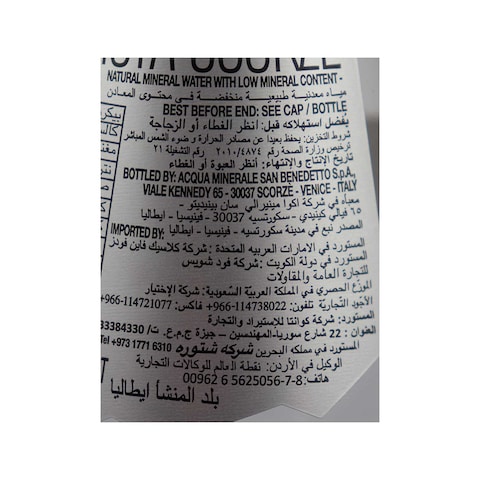 NATURAL MINERAL WATER WITH LOW MINERAL CONTENT -
مياه معدنية طبيعية منخفضة في محتوى المعادن
BEST BEFORE END: SEE CAP / BOTTLE
يفضل استهلاكه قبل: أنظر الغطاء أو الزجاجة
شروط التخزين: يحفظ بعيدا عن مصادر الحرارة و ضوء الشمس المباشر
ترخيص وزارة الصحة رقم ٢٠١٠/٤٨٧٤ رقم التشغيلة ٢١
تاريخ الإنتاج والإنتهاء: أنظر العبوة أو الغطاء
BOTTLED BY: ACQUA MINERALE SAN BENEDETTO S.p.A.,
VIALE KENNEDY 65 - 30037 SCORZÈ - VENICE - ITALY
معبأه في شركة اكوا مينيرالي سان بينيديتو
٦٥ فيالي كينيدي - سكورتسيه 30037 - فينيسيا - ايطاليا
المصدر نبع في مدينة سكورتسيه - فينيسيا - ايطاليا
IMPORTED BY:
المستورد في الامارات العربيه المتحدة : شركة كلاسيك فاين فودز
المستورد في دولة الكويت : شركة فود شويس
للتجارة العامة والمقاولات
الموزع الحصري في المملكة العربيّة السّعودية: شركة الإختيار
الأجود التجاريّة تلفون: 114738022-966+ فاكس: 114721077-966+
المستورد: شركة كوانتا للإستيراد والتجارة
العنوان : 22 شارع سوريا-المهندسين - جيزة ج.م.ع. ت/ 33384330
المستورد في مملكه البحرين شركه شتوره Tel +973 1771 6310
الوكيل في الأردن: نقطة العالم للوكالات التجارية
هاتف: 8-7-5625056 6 00962
بلد المنشأ ايطاليا